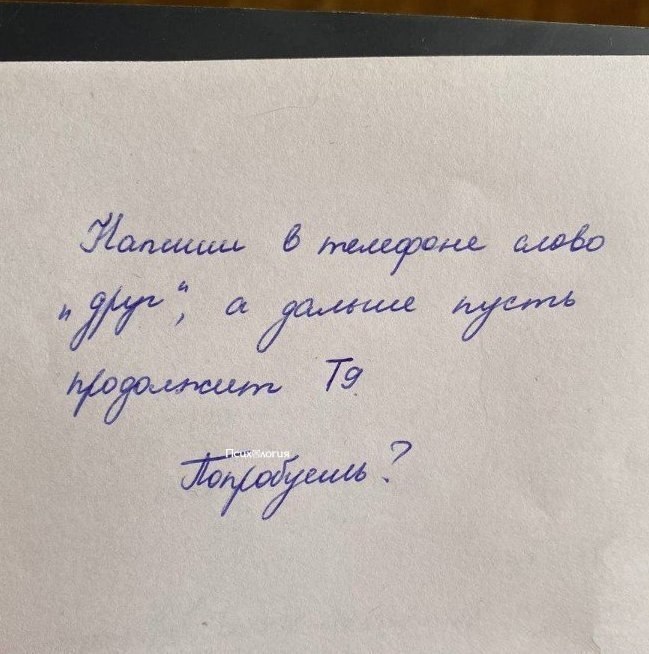 Напиши в телефоне слово
"друг", а дальше пусть
продолжит Т9
Психология
Попробуешь?